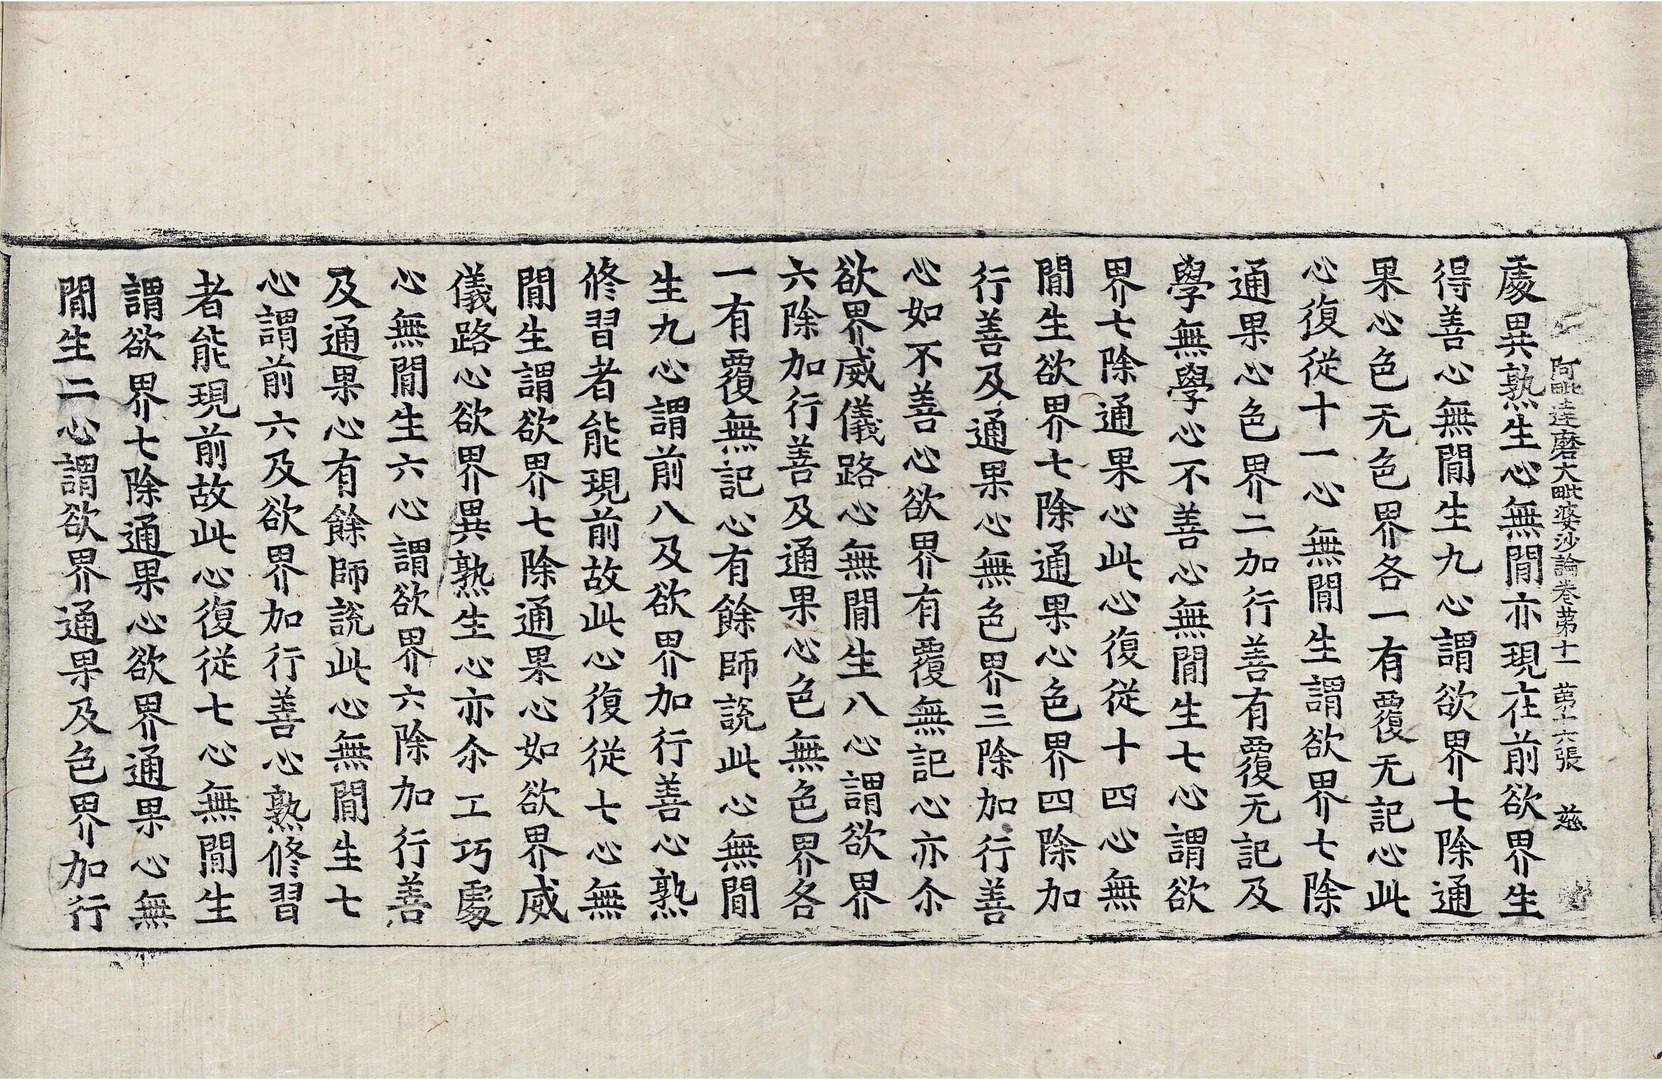 阿毗達磨大毗婆沙論卷苐十一 苐十六張 慈
處異熟生心無閒亦現在前欲界生
得善心無閒生九心謂欲界七除通
果心色无色界各一有覆无記心此
心復從十一心無閒生謂欲界七除
通果心色界二加行善有覆无記及
學無學心不善心無閒生七心謂欲
界七除通果心此心復從十四心無
閒生欲界七除通果心色界四除加
行善及通果心無色界三除加行善
心如不善心欲界有覆無記心亦尒
欲界威儀路心無閒生八心謂欲界
六除加行善及通果心色無色界各
一有覆無記心有餘師說此心無閒
生九心謂前八及欲界加行善心熟
修習者能現前故此心復從七心無
閒生謂欲界七除通果心如欲界威
儀路心欲界異熟生心亦尒工巧處
心無閒生六心謂欲界六除加行善
及通果心有餘師說此心無閒生七
心謂前六及欲界加行善心熟修習
者能現前故此心復從七心無閒生
謂欲界七除通果心欲界通果心無
閒生二心謂欲界通果及色界加行